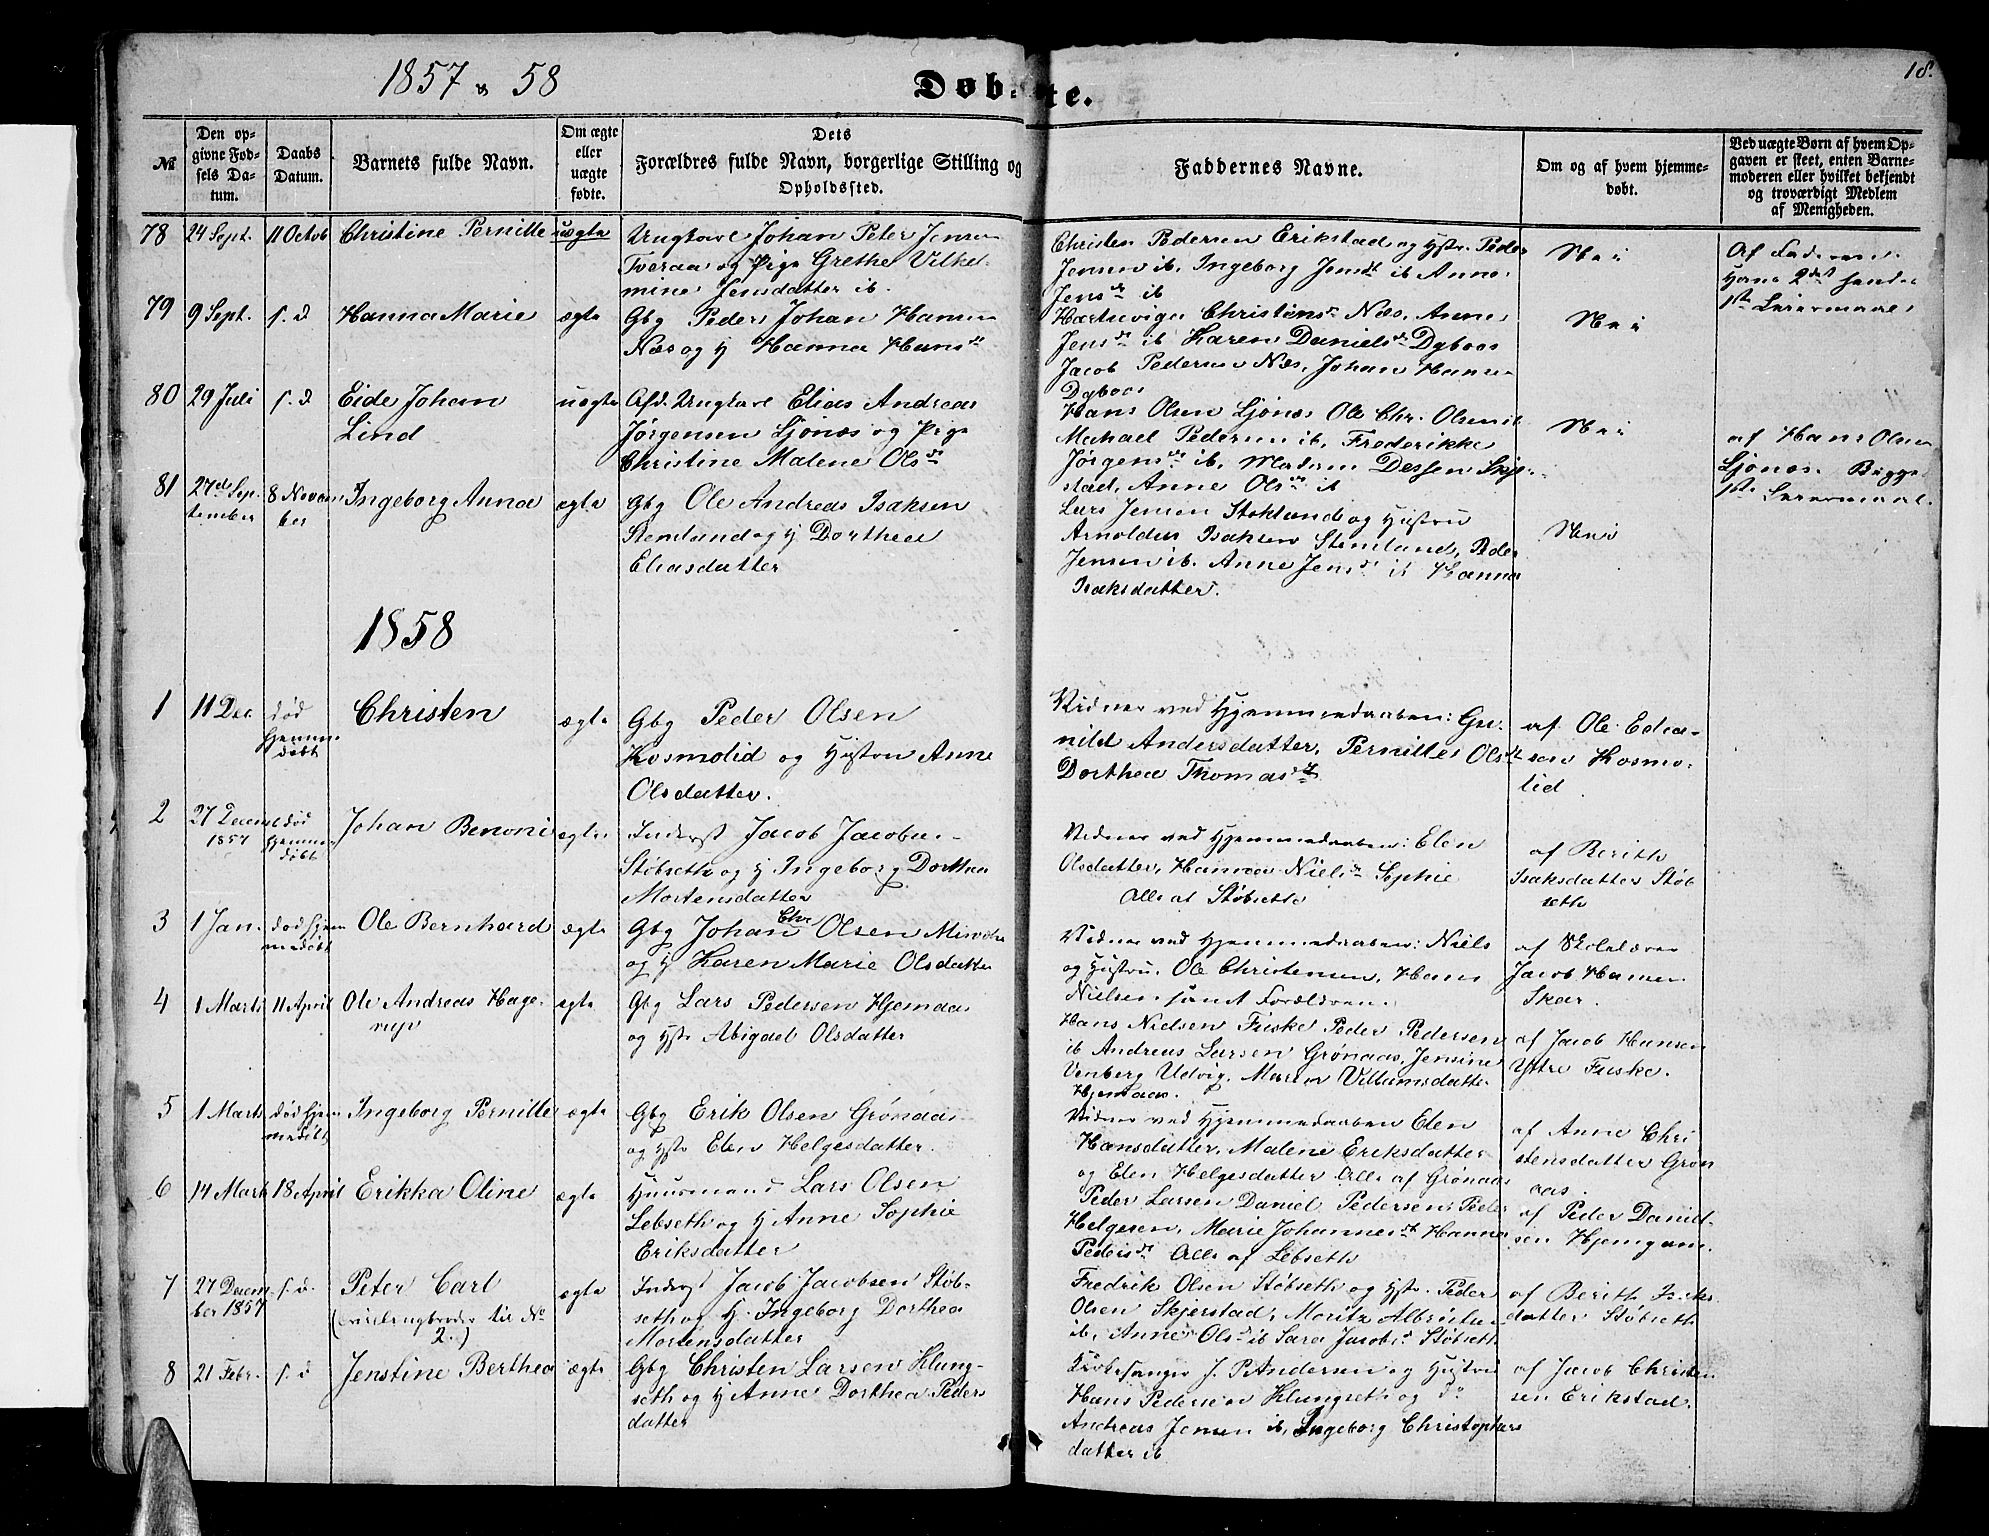 1857 & 58
Døbte.
18.
No
Den opgivne Fødsels Datum.
Daabs Datum.
Barnets fulde Navn.
Om ægte eller uægte fødte.
Dets Forældres fulde Navn, borgerlige Stilling og Opholdssted.
Faddernes Navne.
Om og af hvem hjemmedøbt.
Ved uægte Børn af hvem Opgaven er skeet, enten Barnemoderen eller hvilket bekjendt og troværdigt Medlem af Menigheden.
78 24 Sept. 11 Octob Christine Pernille uægte
Ungkarl Johan Peter Jensen
Tveraa og Pige Grethe Vilhel-
mine Jensdatter ib.
Christen Pedersen Erikstad og Hstr. Peder
Jensen ib, Ingeborg Jensdt ib Anne
Jensdt ib
Nei
Af Faderen
Hans 2det hendes
1ste Leiermaal
79 9 Sept. s. d Hanna Marie ægte
Gbg Peder Johan Hansen
Næs og H Hanna Hansdt
Hartvig Christensen Næs, Anne
Jensdt ib Karen Danielsdt Dybaas
Jacob Pedersen Næs, Johan Hansen
Dybaas
Nei
80 29 Juli s. d Eide Johan
Lind
uægte
Afd. Ungkarl Elias Andreas
Jørgensen Ljønæs og Pige
Christine Malene Olsdt
Hans Olsen Ljønæs Ole Chr. Olsen ib
Michael Pedersen ib, Frederikke
Jørgensdt ib, Madam Dessen Skjer-
stad, Anne Olsdt ib
Nei
af Hans Olsen
Ljønæs. Begges
1ste Leiermaal.
81 27de Sep-
tember
8 Novem
ber
Ingeborg Anna ægte
Gbg Ole Andreas Isaksen
Stemland og H Dorthea
Eliasdatter
Lars Jensen Stokland og Hustru
Arnoldus Isaksen Stemland, Peder
Jensen ib. Anne Jensdt ib Hanna
Isaksdatter.
Nei
1858
1 11 Dec. død
hjemme
døbt
Christen ægte
Gbg Peder Olsen
Kosmolid og Hustru Anne
Olsdatter.
Vidner ved Hjemmedaaben: Gu-
nild Andersdatter, Pernille Olsdt
Dorthea Thomasdt
af Ole Edia-
sen Kosmo-
lid
2 27 Decem
1857
død
Hjemme
døbt
Johan Benoni ægte
Inderst Jacob Jacobsen
Støbseth og H Ingeborg Dorthea
Mortensdatter
Vidner ved Hjemmedaaben: Elen
Olsdatter, Hanna Nielsdt Sophie
Alle af Støbseth
af Berith
Isaksdatter Støb
seth
3 1 Jan. død hjem
medøbt
Ole Bernhard ægte
Gbg Johan Chr Olsen Misvær
og H Karen Marie Olsdatter
Vidner ved Hjemmedaaben: Niels
og Hustru, Ole Christensen, Hans
Nielsen samt Forældrene.
af Skolelærer
Jacob Hansen
Skar.
4 1 Marts 11 April Ole Andreas Hage-
rup
ægte
Gbg Lars Pedersen Hjemaas
og Hstr Abigael Olsdatter
Hans Nielsen Fuske Peder Pedersen
ib Andreas Larsen Grønaas, Jensine
Venberg Udvig, Maren Villumsdatter
Hjemaas.
af Jacob Hansen
Yttre Fuske.
5 1 Marts død hjem
medøbt
Ingeborg Pernille ægte
Gbg Erik Olsen Grønaas
og Hstr Elen Helgesdatter.
Vidner ved Hjemmedaaben Elen
Hansdatter, Malene Eriksdatter
og Elen Helgesdatter Alle af Grønaas
af Anne Chri
stensdatter Grøn
aas.
6 14 Mart 18 April Erikka Oline ægte
Huusmand Lars Olsen
Lebseth og H Anne Sophie
Eriksdatter
Peder Larsen Daniel Pedersen, Peder
Helgesen, Marie Johannesdt Hanna
Pedersdt Alle af Lebseth
af Peder Daniel-
sen Hjemgam.
7 27 Decem
ber 1857
s. d. Peter Carl
(Tvillingbroder til No
2.)
ægte
Inderst Jacob Jacobsen Støb-
seth og H. Ingeborg Dorthea
Mortensdatter
Fredrik Olsen Støbseth og Hstr. Peder
Olsen Skjerstad, Moritz Albrigtsen
ib, Anne Olsdt ib Sara Jacobsdt Støbseth
af Berith Isaks-
datter Støbseth
8 21 Febr. s. d Jenstine Berthea ægte
Gbg Christen Larsen Klung-
seth og H Anne Dorthea Peders
datter
Kirkesanger J. P. Andersen og Hustru
Hans Pedersen Klungset og do
Andreas Jensen ib, Ingeborg Christophers
datter ib
af Jacob Christen
sen Erikstad.